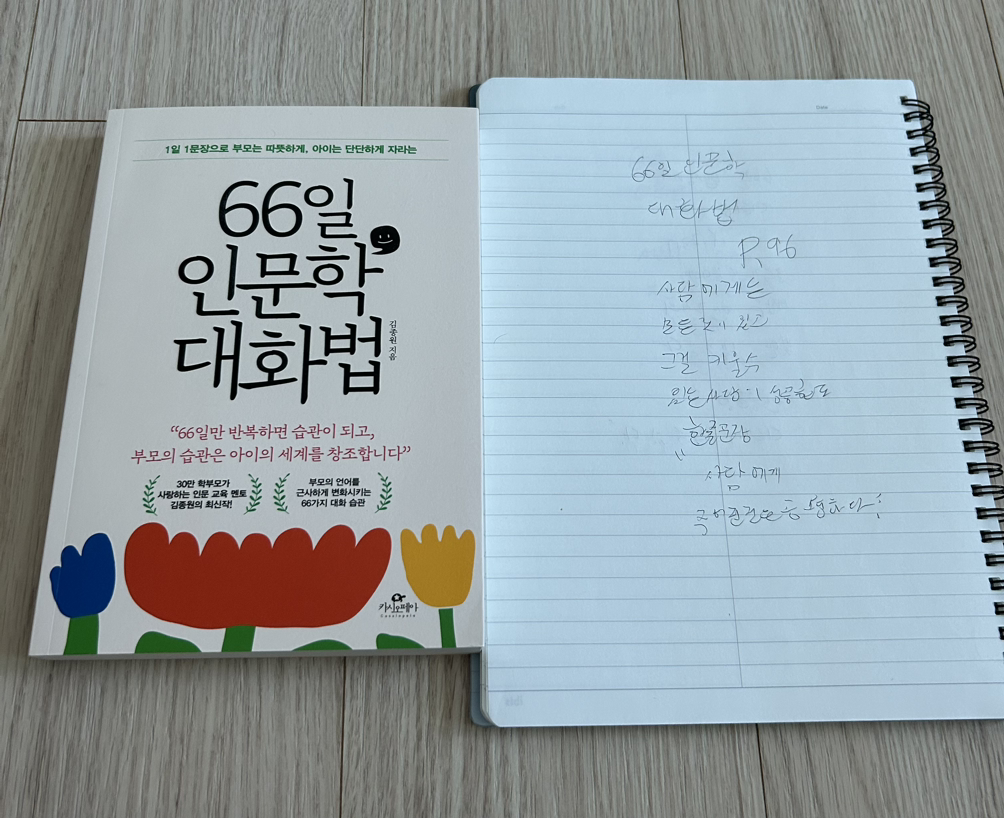 1일 1문장으로 부모는 따뜻하게, 아이는 단단하게 자라는
66일
인문학
대화법
김종원 지음
“66일만 반복하면 습관이 되고,
부모의 습관은 아이의 세계를 창조합니다”
30만 학부모가
사랑하는 인문 교육 멘토
김종원의 최신작!
부모의 언어를
근사하게 변화시키는
66가지 대화 습관
카시오페아
Cassiopeia
Date
66일 인문학
대화법
P. 96
사람에게는
모든 것이 있고
그걸 키울 수
있는 사람이
사람에게